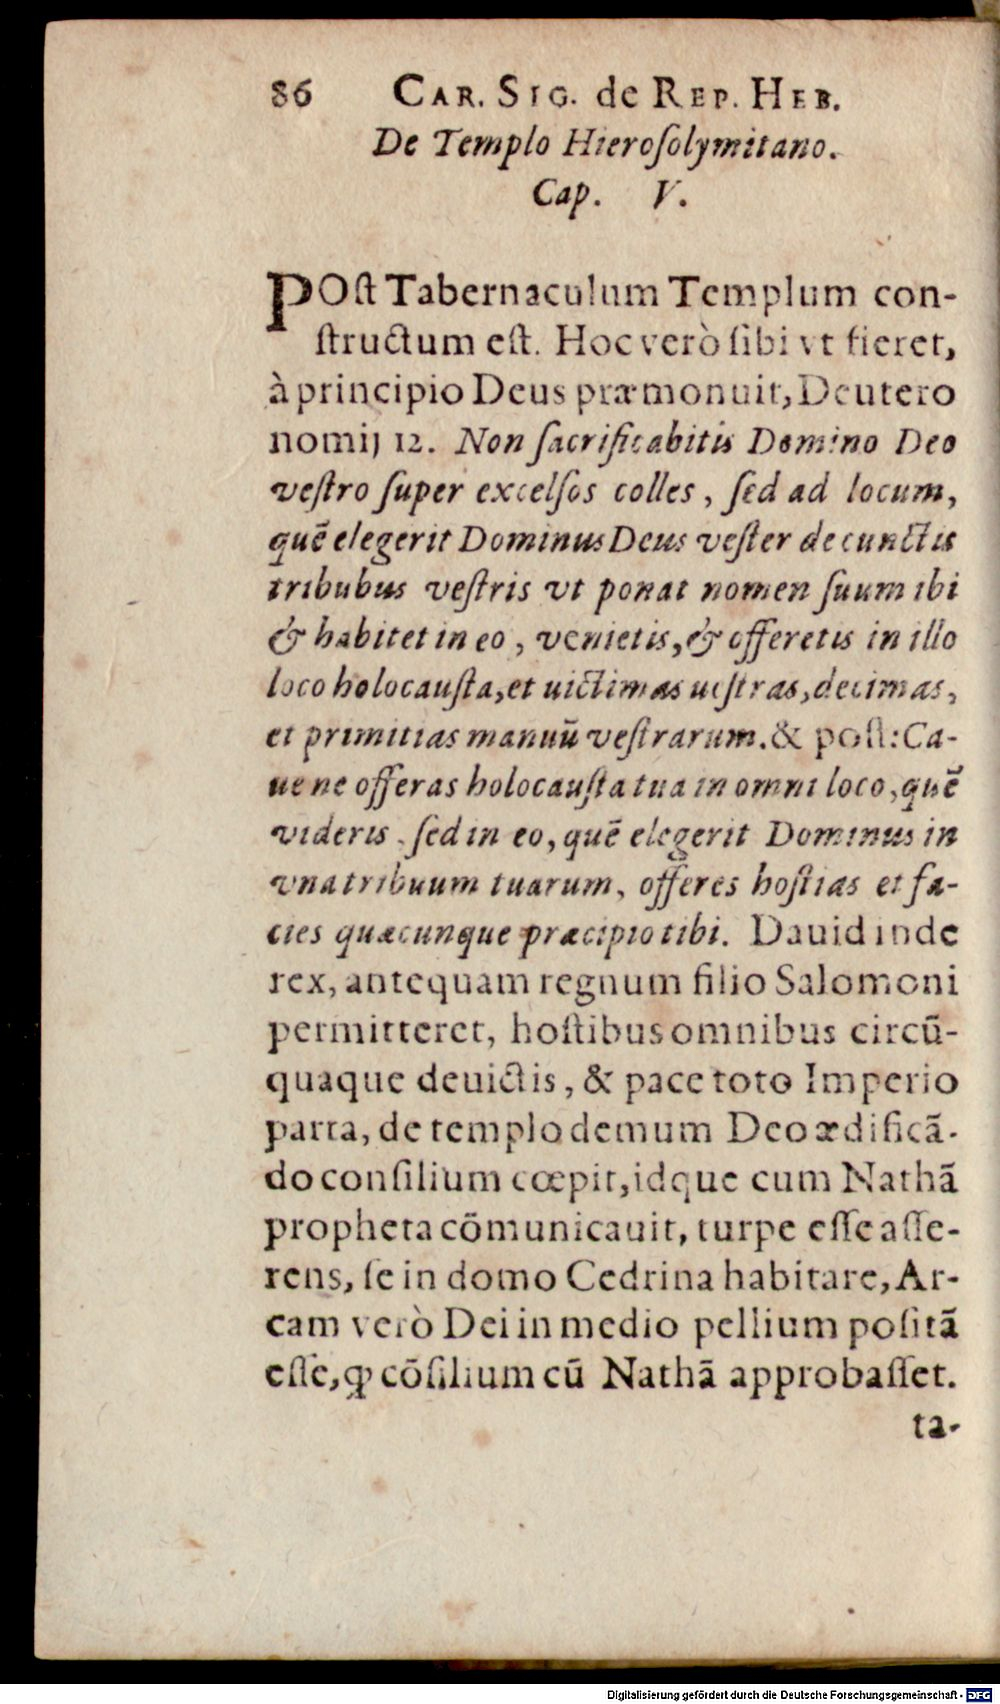 86 CAR. SIG. de REP. HEB.
De Templo Hieroſolymitano.
Cap. V.
POſt Tabernaculum Templum con-
ſtructum eſt. Hoc verò ſibi vt fieret,
à principio Deus præmonuit, Deutero
nomij 12. Non ſacrificabitis Domino Deo
veſtro ſuper excelſos colles, ſed ad locum,
quē elegerit Dominus Deus veſter de cunctis
tribubus veſtris vt ponat nomen ſuum ibi
& habitet in eo, venietis, & offeretis in illo
loco holocauſta, et uictimas ueſtras, decimas,
et primitias manuū veſtrarum. & poſt: Ca-
ue ne offeras holocauſta tua in omni loco, quē
videris. ſed in eo, quē elegerit Dominus in
vna tribuum tuarum, offeres hoſtias et fa-
cies quæcunque præcipio tibi. Dauid inde
rex, antequam regnum filio Salomoni
permitteret, hoſtibus omnibus circū-
quaque deuictis, & pace toto Imperio
parta, de templo demum Deo ædificā-
do conſilium cœpit, idque cum Nathā
propheta cōmunicauit, turpe eſſe aſſe-
rens, ſe in domo Cedrina habitare, Ar-
cam verò Dei in medio pellium poſitā
eſſe, ꝙ cōſilium cū Nathā approbaſſet.
ta-
Digitalisierung gefördert durch die Deutsche Forschungsgemeinschaft - DFG